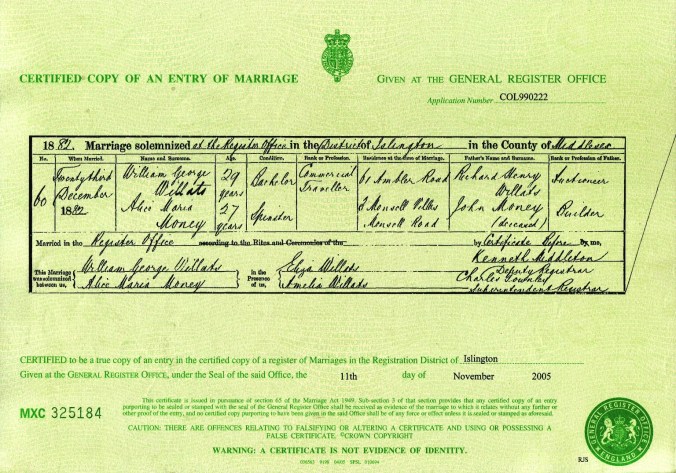 CERTIFIED COPY OF AN ENTRY OF MARRIAGE
GIVEN AT THE GENERAL REGISTER OFFICE
Application Number COL990222
1882. Marriage solemnized at the Register Office in the District of Islington in the County of Middlesex
No. When Married. Name and Surname. Age. Condition. Rank or Profession. Residence at the time of Marriage. Father's Name and Surname. Rank or Profession of Father.
60 Twenty third December 1882 William George Willats 29 years Bachelor Commercial Traveller 61 Ambler Road Richard Henry Willats Auctioneer
Alice Maria Money 27 years Spinster Monsell Villas Monsell Road John Money (deceased) Builder
Married in the Register Office according to the Rites and Ceremonies of the by Certificate Before by me,
Kenneth Middleton
Deputy Registrar
This Marriage was solemnized between us, William George Willats Alice Maria Money in the Presence of us, Eliza Willats Amelia Willats
Charles Townley
Superintendent Registrar
CERTIFIED to be a true copy of an entry in the certified copy of a register of Marriages in the Registration District of Islington
Given at the GENERAL REGISTER OFFICE, under the Seal of the said Office, the 11th day of November 2005
MXC 325184
This certificate is issued in pursuance of section 65 of the Marriage Act 1949. Sub-section 3 of that section provides that any certified copy of an entry
purporting to be sealed or stamped with the seal of the General Register Office shall be received as evidence of the marriage to which it relates without any further or
other proof of the entry, and no certified copy purporting to have been given in the said Office shall be of any force or effect unless it is sealed or stamped as aforesaid.
CAUTION: THERE ARE OFFENCES RELATING TO FALSIFYING OR ALTERING A CERTIFICATE AND USING OR POSSESSING A
FALSE CERTIFICATE. ©CROWN COPYRIGHT
WARNING: A CERTIFICATE IS NOT EVIDENCE OF IDENTITY.
GENERAL REGISTER OFFICE
ENGLAND
RJS